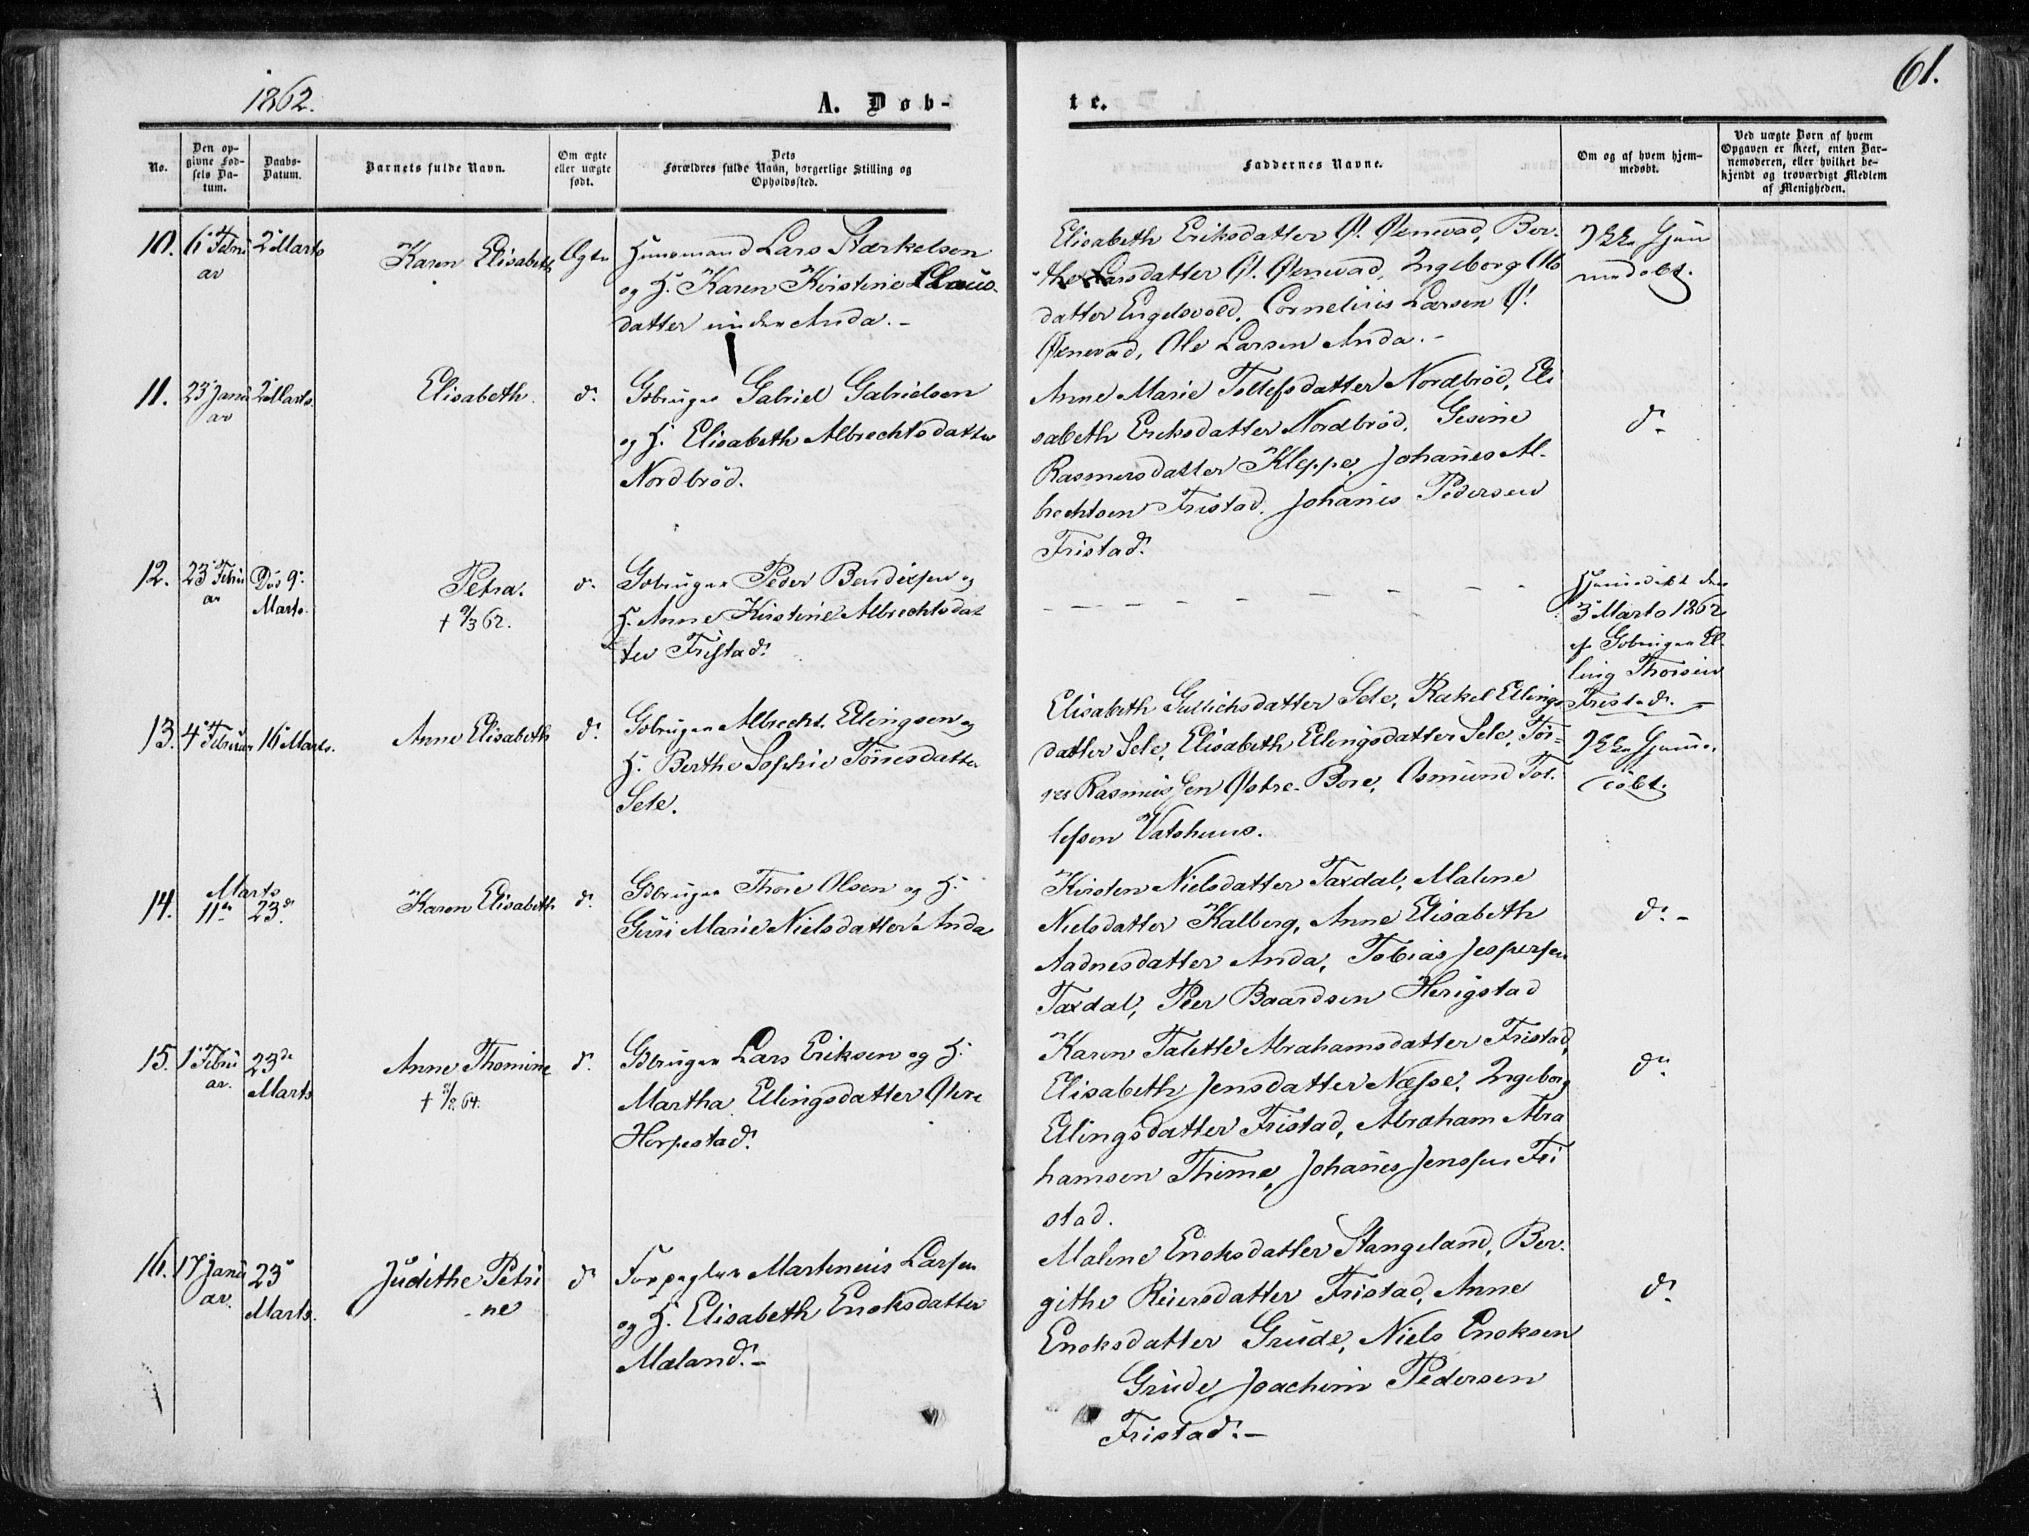 1862.
A. Døb-
te.
61.
No.
Den op-
givne Fød-
sels Da-
tum.
Daabs-
Datum.
Barnets fulde Navn.
Om ægte
eller uægte
født.
Dets
Forældres fulde Navn, borgerlige Stilling og
Opholdssted.
Faddernes Navne.
Om og af hvem hjem-
medøbt.
Ved uægte Børn af hvem
Opgaven er skeet, enten Bar-
nemoderen, eller hvilket be-
kjendt og troværdigt Medlem
af Menigheden.
10.
6 Febru
ar
2 Marts
Karen Elisabeth
Ægte
Huusmand Lars Stærkelsen
og H. Karen Kirstine Claus-
datter under Anda.-
Elisabeth Eriksdatter Ø. Øxnevad, Ber-
the Larsdatter Ø. Øxnevad, Ingeborg Ols
datter Engelsvold, Cornelius Larsen Ø.
Øxnevad, Ole Larsen Anda.-
Ikke Hjem
medøbt.
11.
23 Janu
ar
2 Marts.
Elisabeth.
d.
Gbruger Gabriel Gabrielsen
og H. Elisabeth Albrechtsdatter
Nordbrød.
Anne Marie Tollefsdatter Nordbrød, Eli
sabeth Eriksdatter Nordbrød, Gesine
Rasmusdatter Kleppe, Johanes Al-
brechtsen Fristad, Johanes Pedersen
Fristad.
d.
12.
23 Febru
ar
Død 9
Marts.
Petra.
+ 9/3 62.
d.
Gbruger Peder Bendixsen og
H. Anne Kirstine Albrechtsdat
ter Fristad.
Hjemedøbt den
3 Marts 1862
af Gbruger El-
ling Thorsen
Fristad.
13.
4 Februar
16 Marts.
Anne Elisabeth
d.
Gbruger Albrecht Ellingsen og
H. Berthe Sophie Tønesdatter
Sele.
Elisabeth Gullichsdatter Sele, Rakel Ellings
datter Sele, Elisabeth Ellingsdatter Sele, Tør-
res Rasmussen Østre-Bore, Osmund Tol-
lefsen Vatshuus.
Ikke Hjemme-
døbt.
14.
Marts
11te
23d.
Karen Elisabeth
d.
Gbruger Thore Olsen og H.
Guri Marie Nielsdatter Anda
Kirsten Nielsdatter Taxdal, Malene
Nielsdatter Kalberg, Anne Elisabeth
Aadnesdatter Anda, Tobias Jespersen
Taxdal, Peer Baardsen Herigstad
d.-
15.
1 Febru
ar.
23de
Marts
Anne Thomine
d.
Gbruger Lars Eriksen og H.
Martha Ellingsdatter Øvre
Horpestad.
Karen Talette Abrahamsdatter Fristad,
Elisabeth Jensdatter Næsse, Ingeborg
Ellingsdatter Fristad, Abraham Abra
hamsen Thime, Johanes Jenssen Fri
stad.
d.
16.
17 Janu
ar.
23
Marts.
Judithe Petri
-ne
d.
Forpagter Martinius Larsen
og H. Elisabeth Enoksdatter
Mæland.-
Malene Enoksdatter Stangeland, Ber-
githe Reiersdatter Fristad, Anne
Enoksdatter Grude, Niels Enoksen
Grude, Joachim Pedersen
Fristad.-
d.